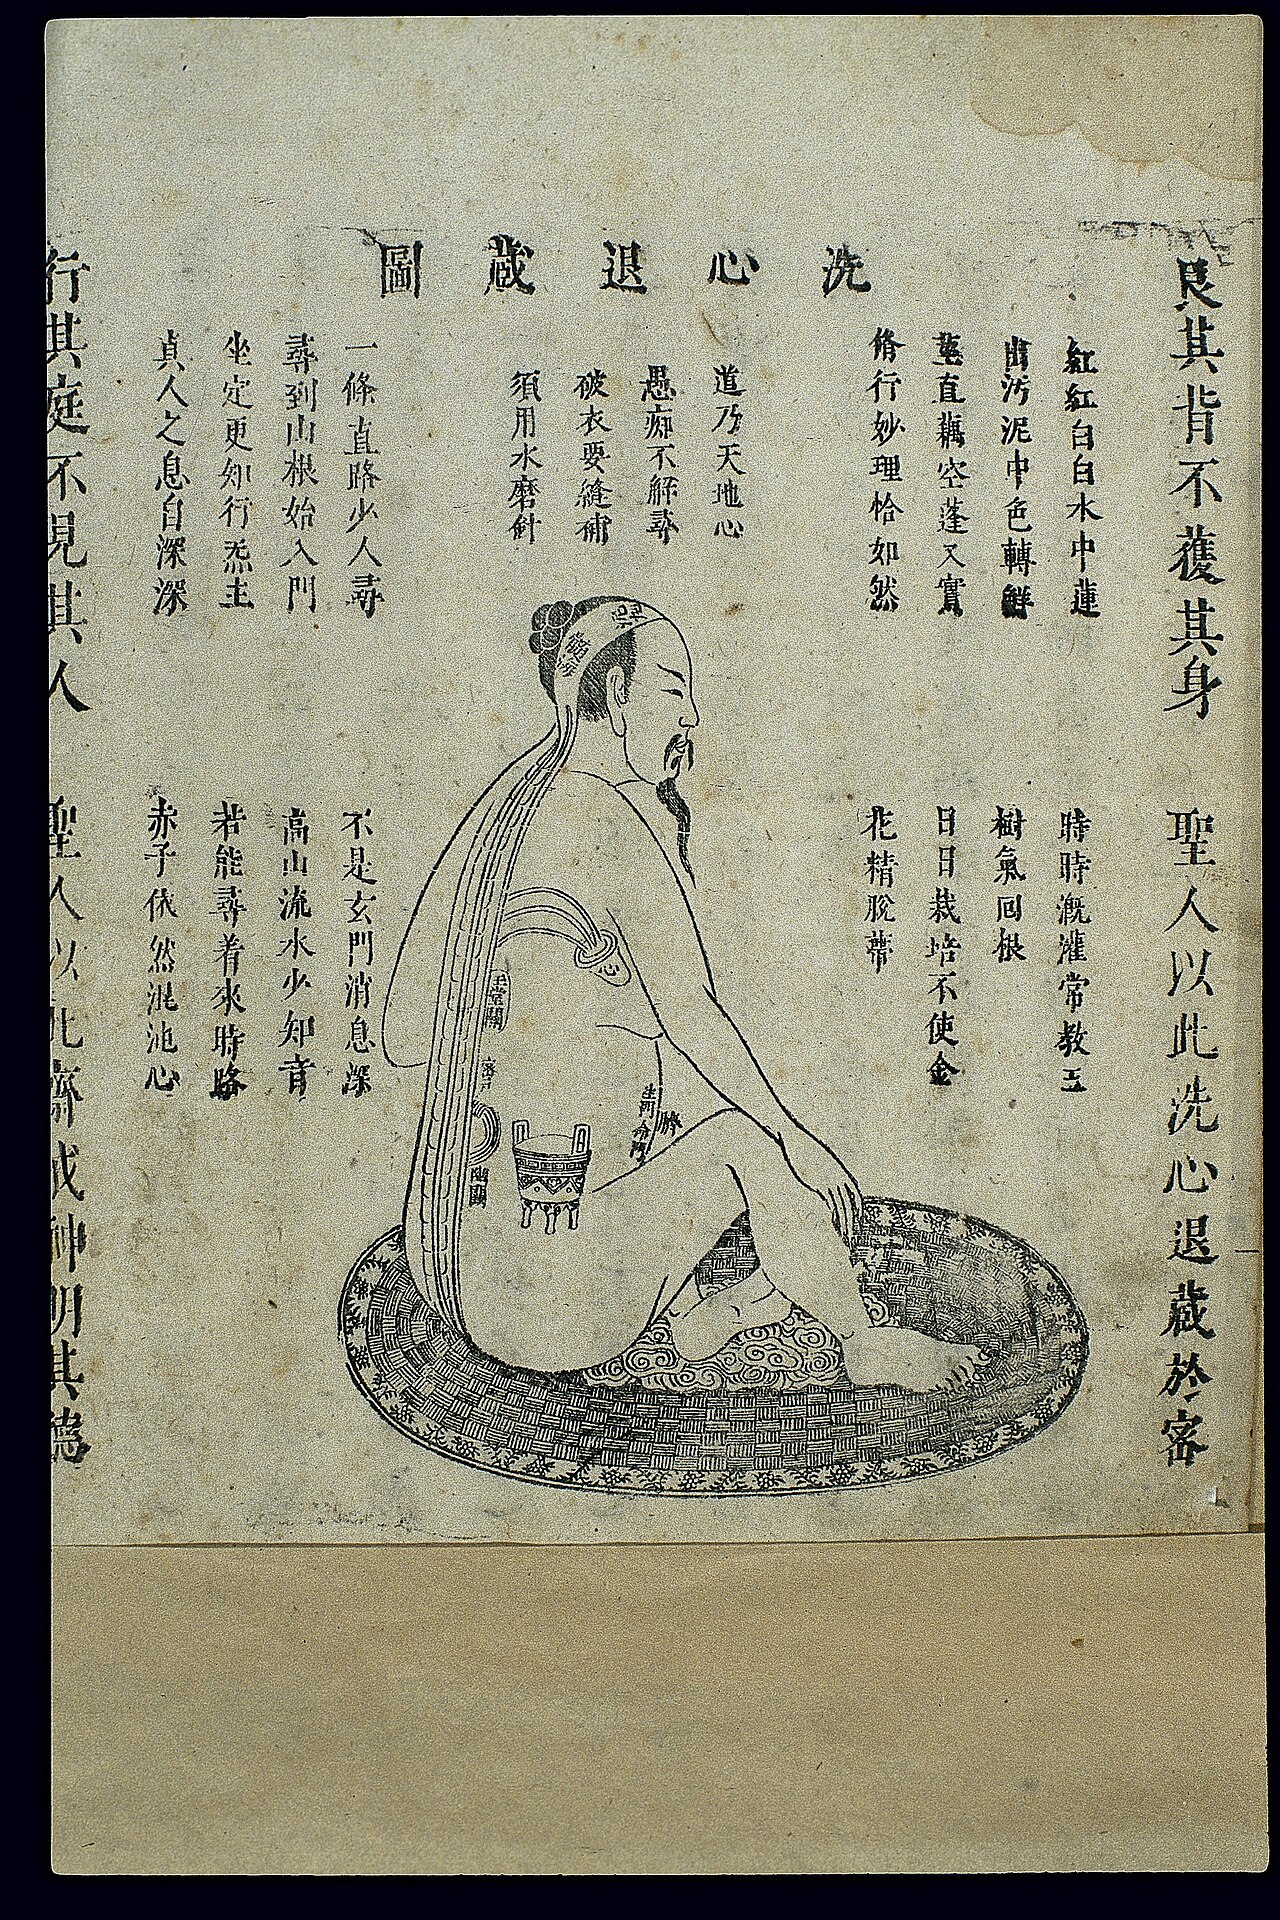 洗心退藏圖
艮其背不獲其身
聖人以此洗心退藏於密
紅紅白白水中蓮
出污泥中色轉鮮
莖直藕空蓬又實
脩行妙理恰如然
時時溉灌常教玉
樹氣回根
日日栽培不使金
花精脫蒂
道乃天地心
愚痴不解尋
破衣要縫補
須用水磨針
一條直路少人尋
尋到山根始入門
坐定更知行炁主
真人之息自深深
不是玄門消息深
高山流水少知音
若能尋着來時路
赤子依然混沌心
行其庭不見其人
聖人以此齋戒神明其德
心
玉堂關
臍
生門
命門